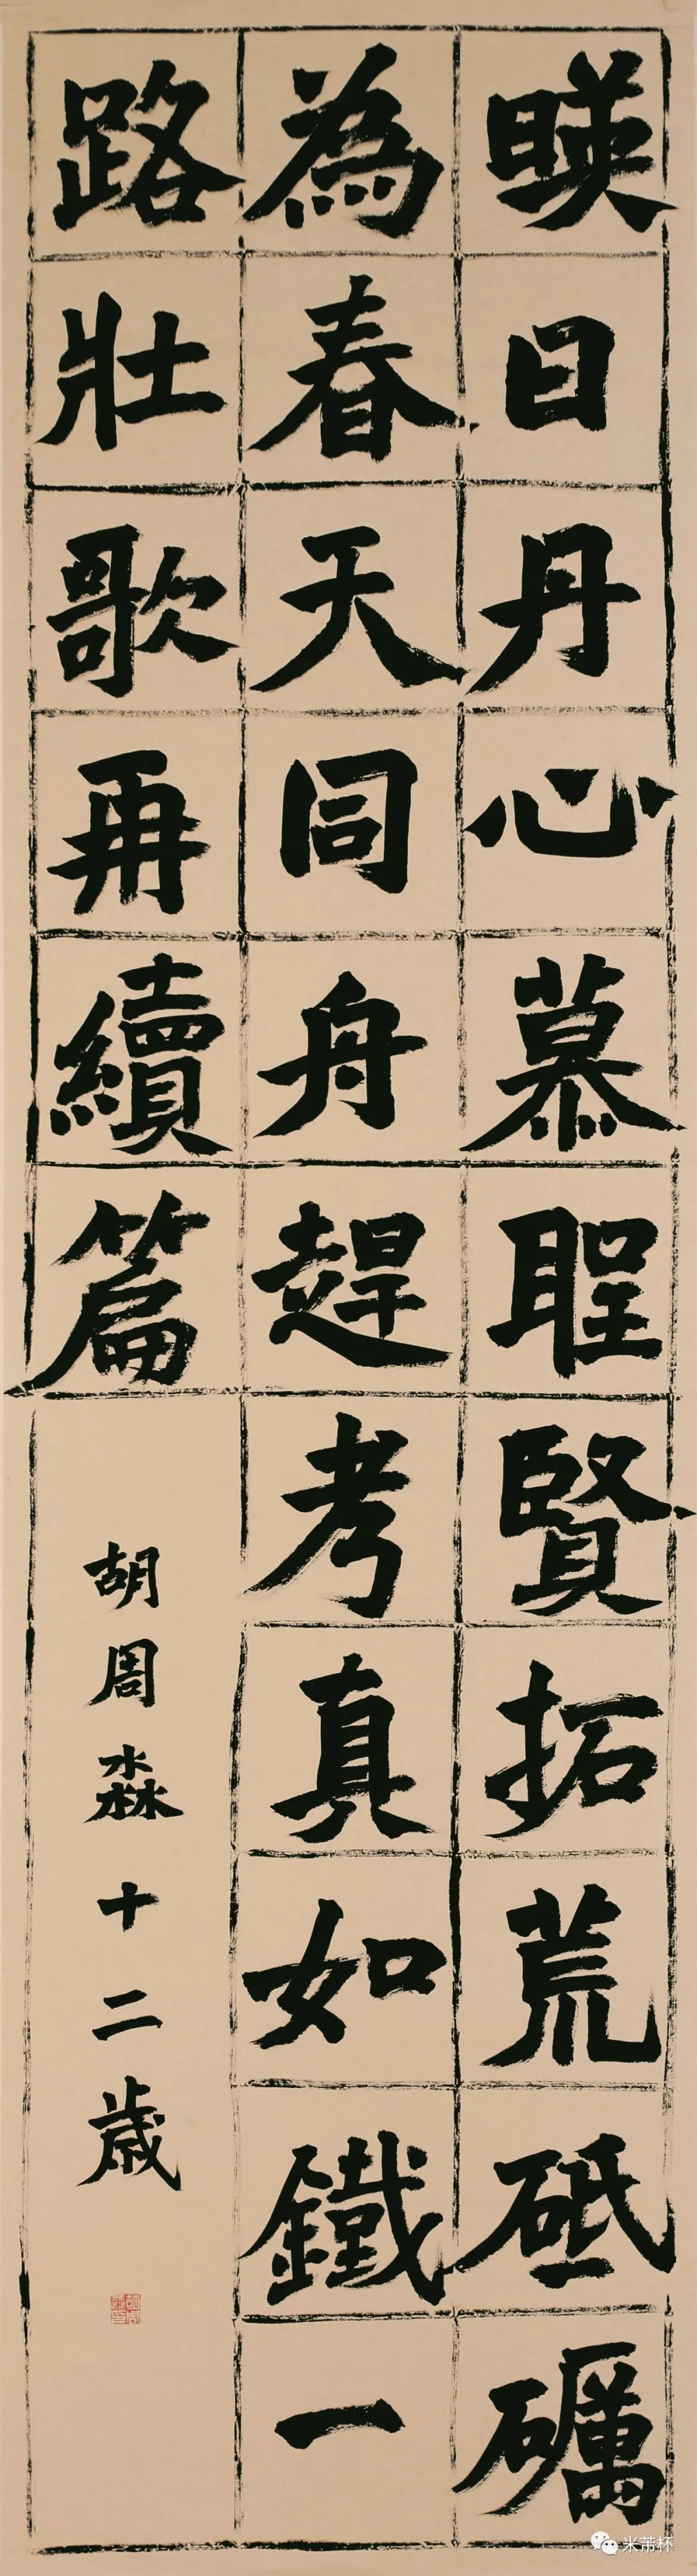 暎日丹心慕聖賢拓荒砥礪
為春天同舟趕考真如鐵一
路壯歌再續篇
胡周淼十二歲
米芾杯